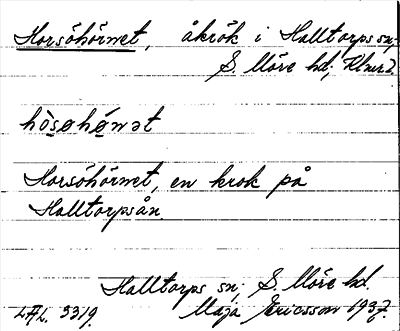 Horsöhörnet, åkrök i Halltorps sn;
S. Möre hd,
hòsøhǿnət
Horsöhörnet, en krok på
Halltorpsån.
Halltorps sn; S. Möre hd.
LAL. 3319. Maja Ericsson 1937.